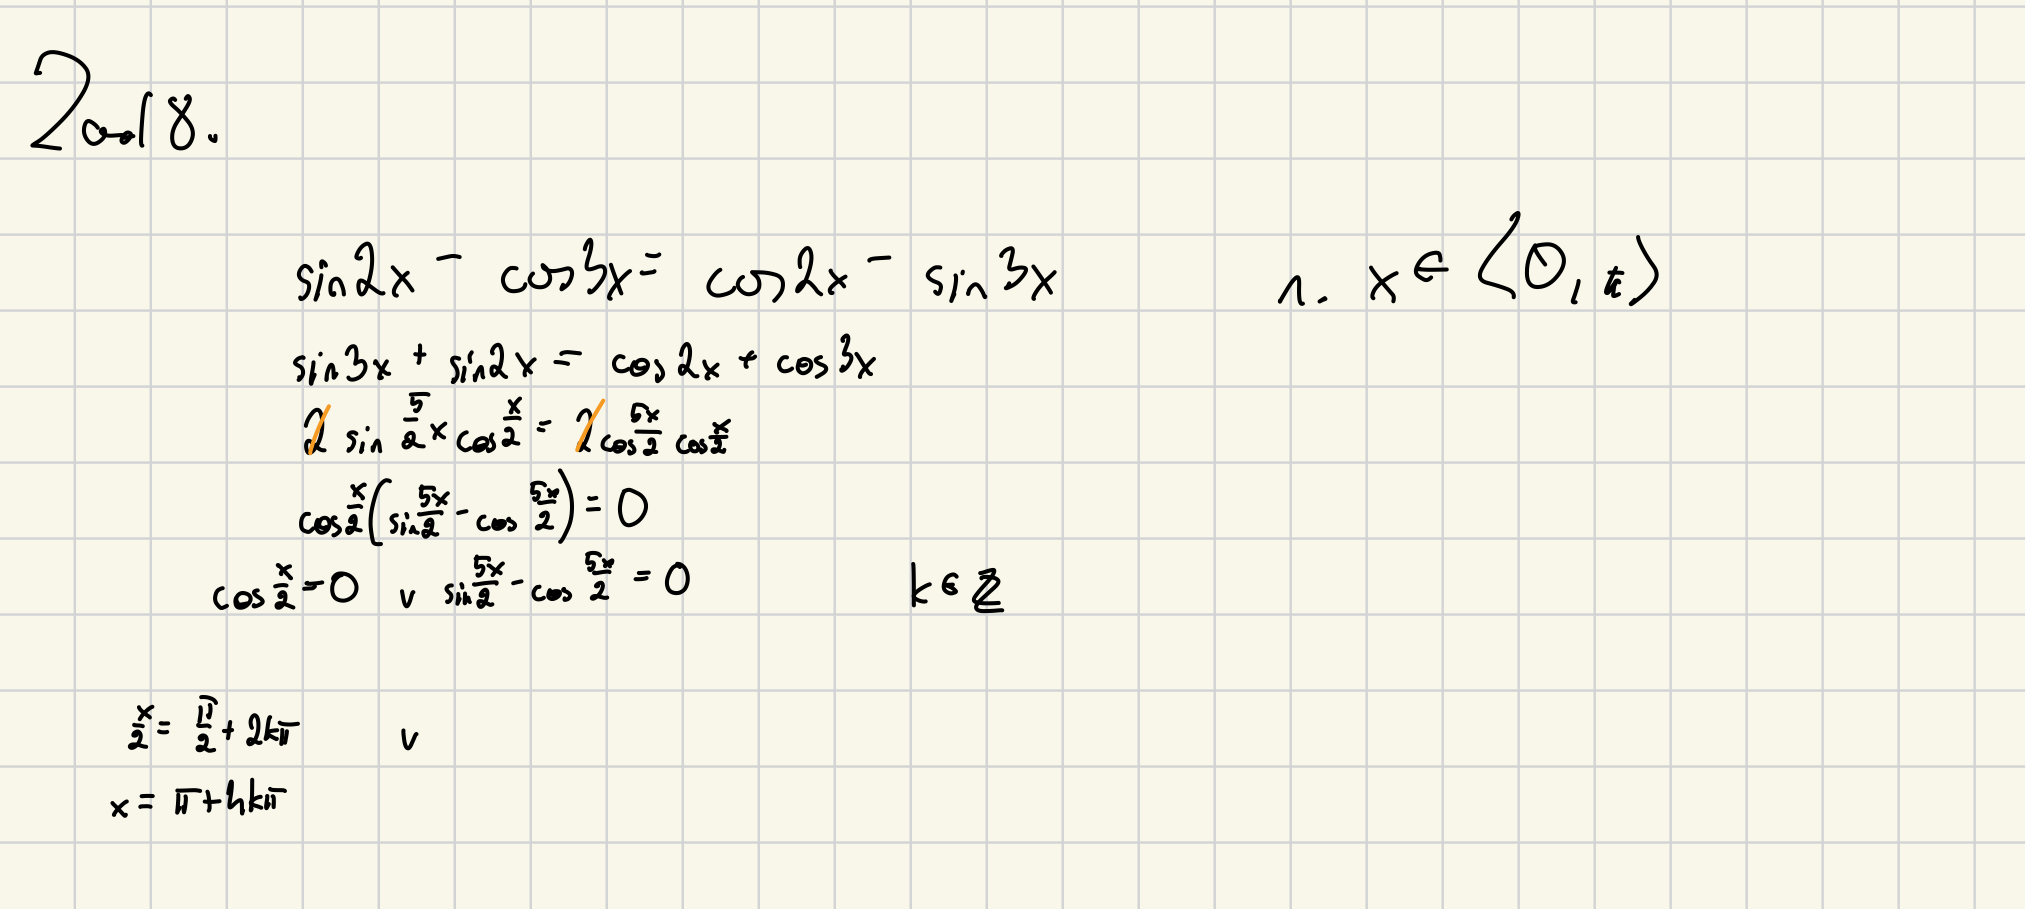 Zad 8.
sin2x - cos3x = cos2x - sin3x n. x ∈ ⟨0, π⟩
sin3x + sin2x = cos2x + cos3x
2 sin 5/2 x cos x/2 = 2 cos 5x/2 cos x/2
cos x/2 (sin 5x/2 - cos 5x/2) = 0
cos x/2 = 0 v sin 5x/2 - cos 5x/2 = 0 k ∈ ℤ
x/2 = π/2 + 2kπ v
x = π + 4kπ